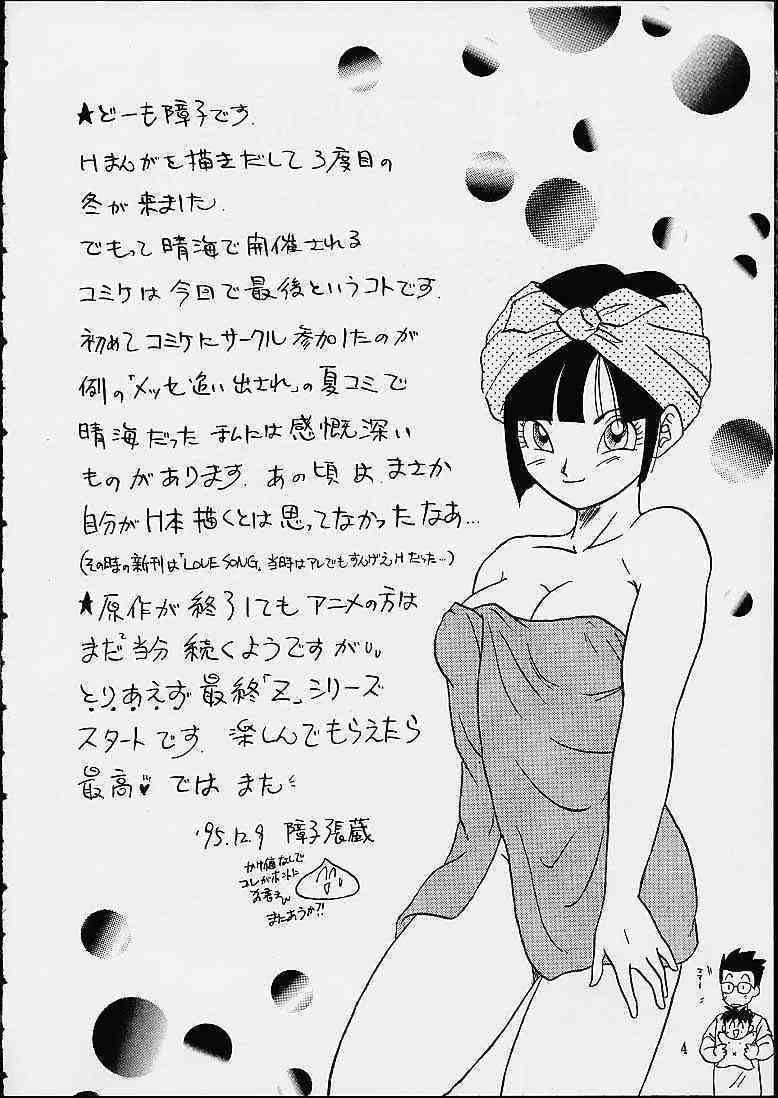 ★どーも障子です.
Hまんがを描きだして3度目の
冬が来ました.
でもって晴海で開催される
コミケは今回で最後というコトです.
初めてコミケにサークル参加したのが
例の「メッセ追い出され」の夏コミで
晴海だったまんには感慨深い
ものがあります. あの頃は、まさか
自分がH本描くとは思ってなかったなあ…
(その時の新刊は「LOVE SONG」当時はアレでもすんげえHだった…)
★原作が終了してもアニメの方は
まだ当分続くようですが
とりあえず最終「Z」シリーズ
スタートです. 楽しんでもらえたら
最高♥ ではまた
'95.12.9 障子張蔵
かけ値なしで
コレがホントに
またあうか?!
4